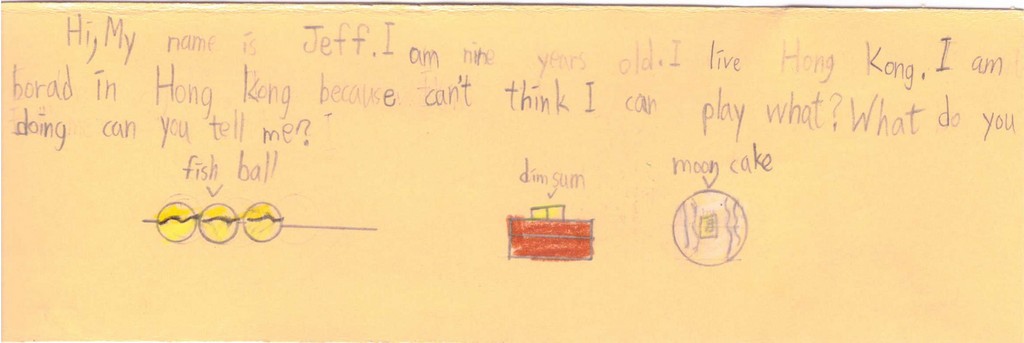 Hi, My name is Jeff. I am nine years old. I live Hong Kong. I am
borad in Hong Kong because can't think I can play what? What do you
doing can you tell me?
fish ball
dimsum
moon cake